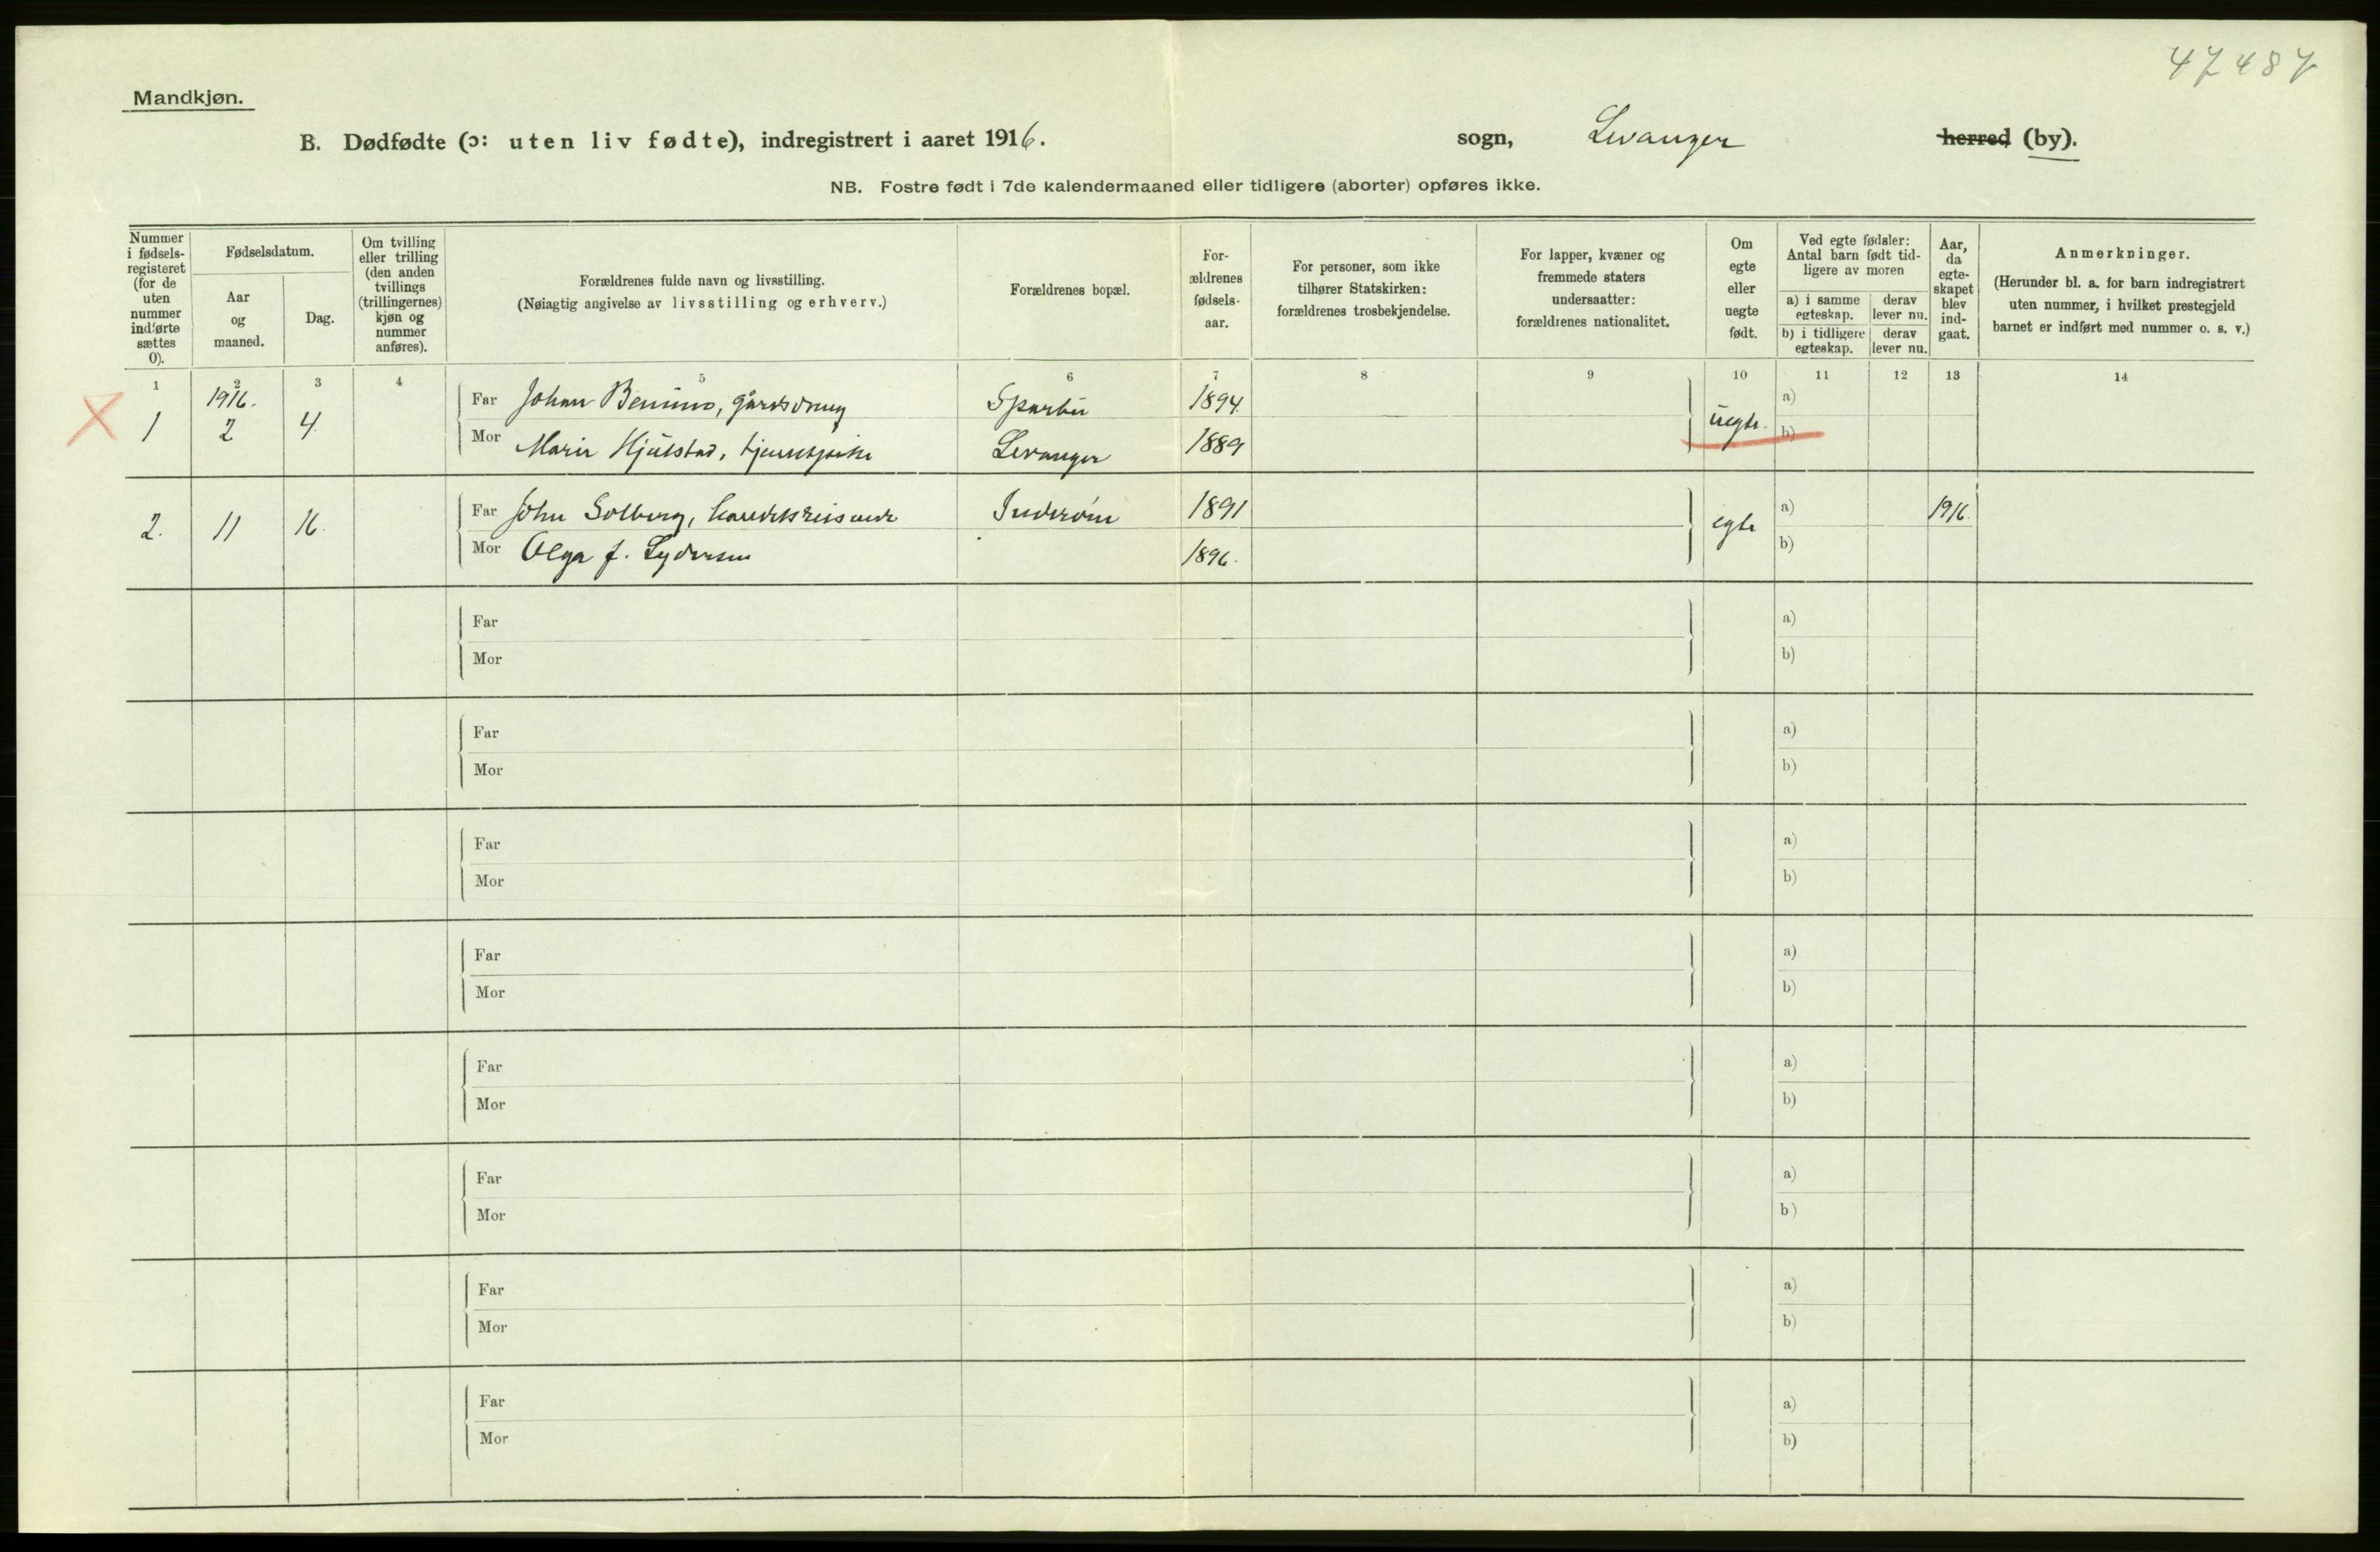 47487
Mandkjøn.
B. Dødfødte (ɔ: uten liv fødte), indregistrert i aaret 1916.
sogn, Levanger herred (by).
NB. Fostre født i 7de kalendermaaned eller tidligere (aborter) opføres ikke.
Nummer
i fødsels-
registeret
(for de
uten
nummer
indførte
sættes
0).
Fødselsdatum.
Aar
og
maaned.
Dag.
Om tvilling
eller trilling
(den anden
tvillings
(trillingernes)
kjøn og
nummer
anføres).
Forældrenes fulde navn og livsstilling.
(Nøiagtig angivelse av livsstilling og erhverv.)
Forældrenes bopæl.
For-
ældrenes
fødsels-
aar.
For personer, som ikke
tilhører Statskirken:
forældrenes trosbekjendelse.
For lapper, kvæner og
fremmede staters
undersaatter:
forældrenes nationalitet.
Om
egte
eller
uegte
født.
Ved egte fødsler:
Antal barn født tid-
ligere av moren
a) i samme
egteskap.
derav
lever nu.
b) i tidligere
egteskap.
derav
lever nu.
Aar,
da
egte-
skapet
blev
ind-
gaat.
Anmerkninger.
(Herunder bl. a. for barn indregistrert
uten nummer, i hvilket prestegjeld
barnet er indført med nummer o. s. v.)
1 2 3 4 5 6 7 8 9 10 11 12 13 14
1916.
1 2 4
Far Johan , gårdsdreng Sparbu 1894
Mor Marie Hjulstad, tjenestpike Levanger 1889
uegte.
a)
b)
2. 11 16.
Far John Solberg, handelsreisende Inderøen 1891
Mor Olga f. Lydersen 1896.
egte
a) 1916.
b)
Far a)
Mor b)
Far a)
Mor b)
Far a)
Mor b)
Far a)
Mor b)
Far a)
Mor b)
Far a)
Mor b)
Far a)
Mor b)
Far a)
Mor b)